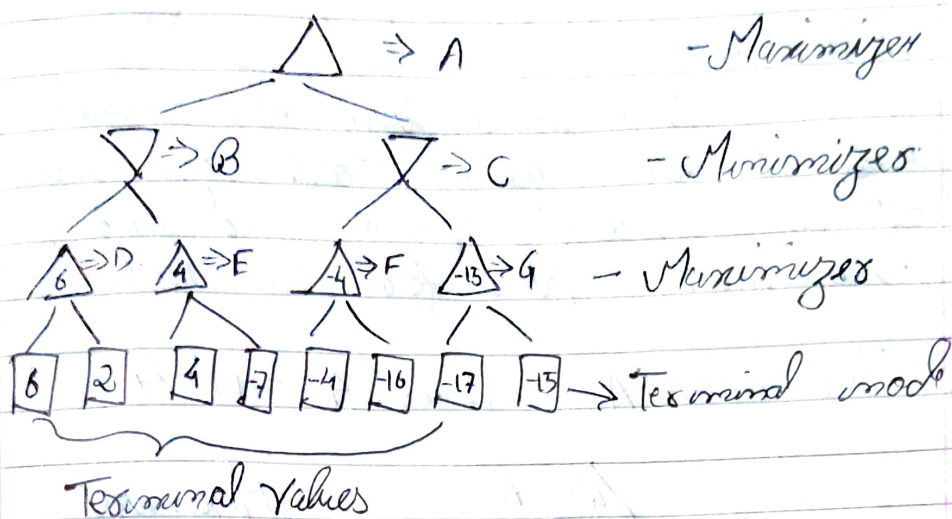 ⇒ A - Maximizer
⇒ B ⇒ C - Minimizer
6 ⇒ D 4 ⇒ E -4 ⇒ F -13 ⇒ G - Maximizer
6 2 4 -7 -4 -16 -17 -13 → Terminal nod
Terminal Values